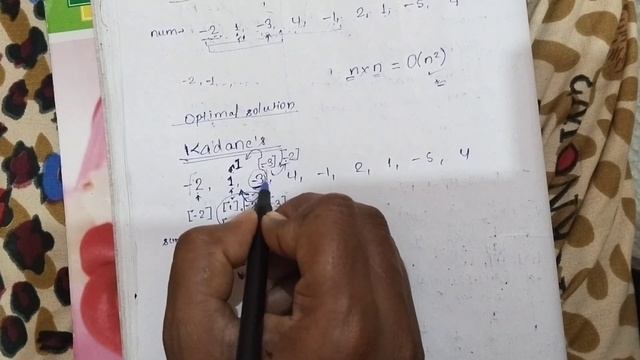 nums -2, 1, -3, 4, -1, 2, 1, -5, 4
-2, -1 ......
n x n = O(n²)
Optimal solution
Kadane's
1 [-3] [-2]
-2, 1, -3 4, -1, 2, 1, -5, 4
[-2] [1],